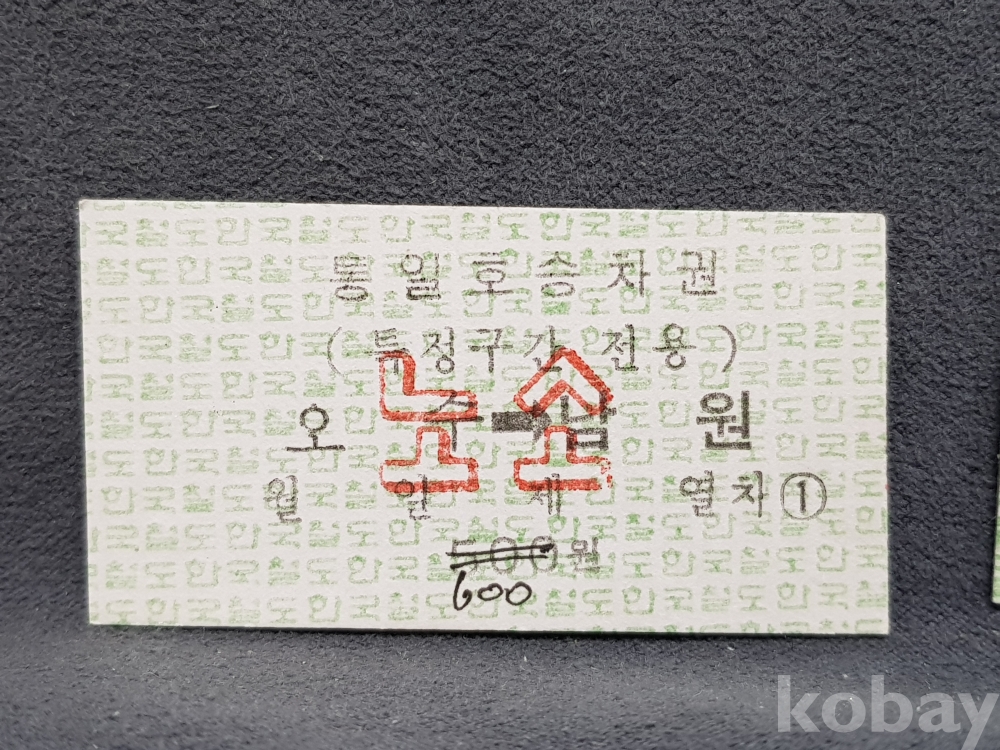 통일호승차권
(특정구간 전용)
오 수➡삽 원
노소
월 일 제 열차①
500원
600
kobay